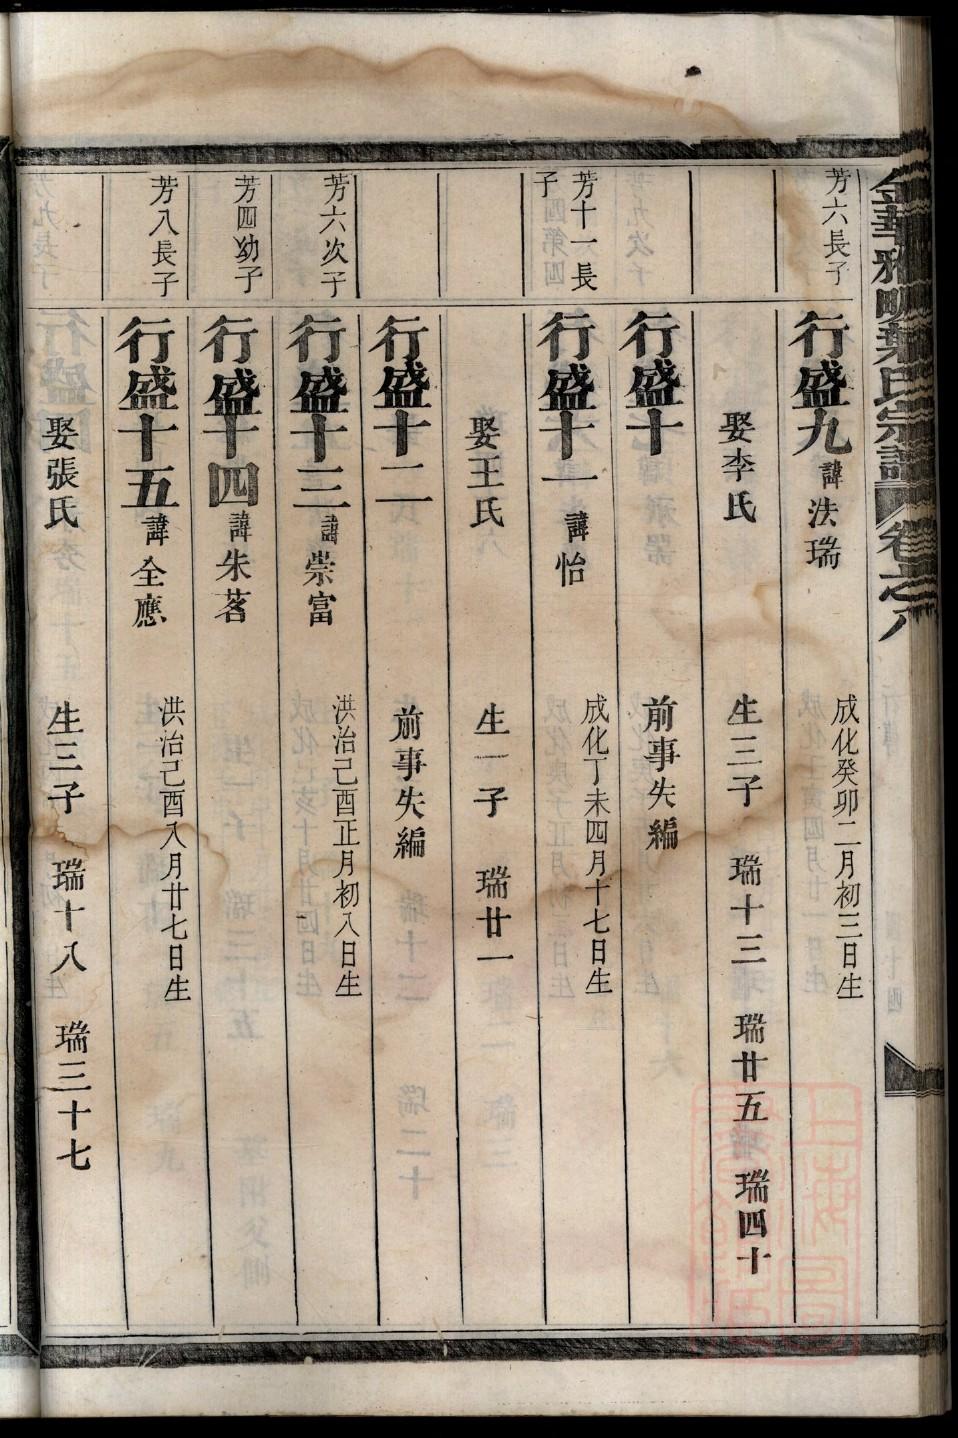 金華雅畈葉氏宗譜 卷之八
芳六長子
行盛九 諱法瑞 成化癸卯二月初三日生
娶李氏 生三子 瑞十三 瑞廿五 瑞四十
行盛十 前事失編
芳十一長子
行盛十一 諱怡 成化丁未四月十七日生
娶王氏 生一子 瑞廿一
行盛十二 前事失編
芳六次子
行盛十三 諱崇富 洪治己酉正月初八日生
芳四幼子
行盛十四 諱朱茗
芳八長子
行盛十五 諱全應 洪治己酉八月廿七日生
娶張氏 生三子 瑞十八 瑞三十七